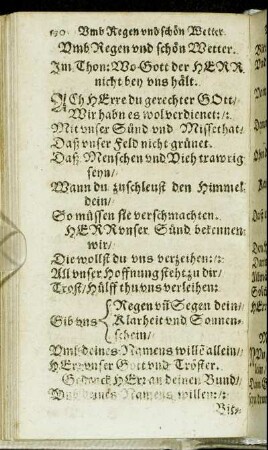 130 Vmb Regen vnd schön Wetter.
Vmb Regen vnd schön Wetter.
Im Thon: Wo Gott der HERR
nicht bey vns hält.
ACh HErre du gerechter GOtt/
Wir habn es wol verdienet:/:
Mit vnser Sünd vnd Missethat/
Daß vnser Feld nicht grünet.
Daß Menschen vnd Vieh trawrig
seyn/
Wann du zuschleust den Himmel
dein/
So müssen sie verschmachten.
HERR vnser Sünd bekennen
wir/
Die wollst du vns verzeihen:/:
All vnser Hoffnung steht zu dir/
Trost/ Hülff thu vns verleihen:
Gib vns
Regen vñ Segen dein/
Klarheit vnd Sonnen-
schein/
Vmb deines Namens willē allein/
HErr vnser Gott vnd Tröster.
Gedenck HErr an deinen Bund/
Vmb deines Namens willen:/:
Bit-